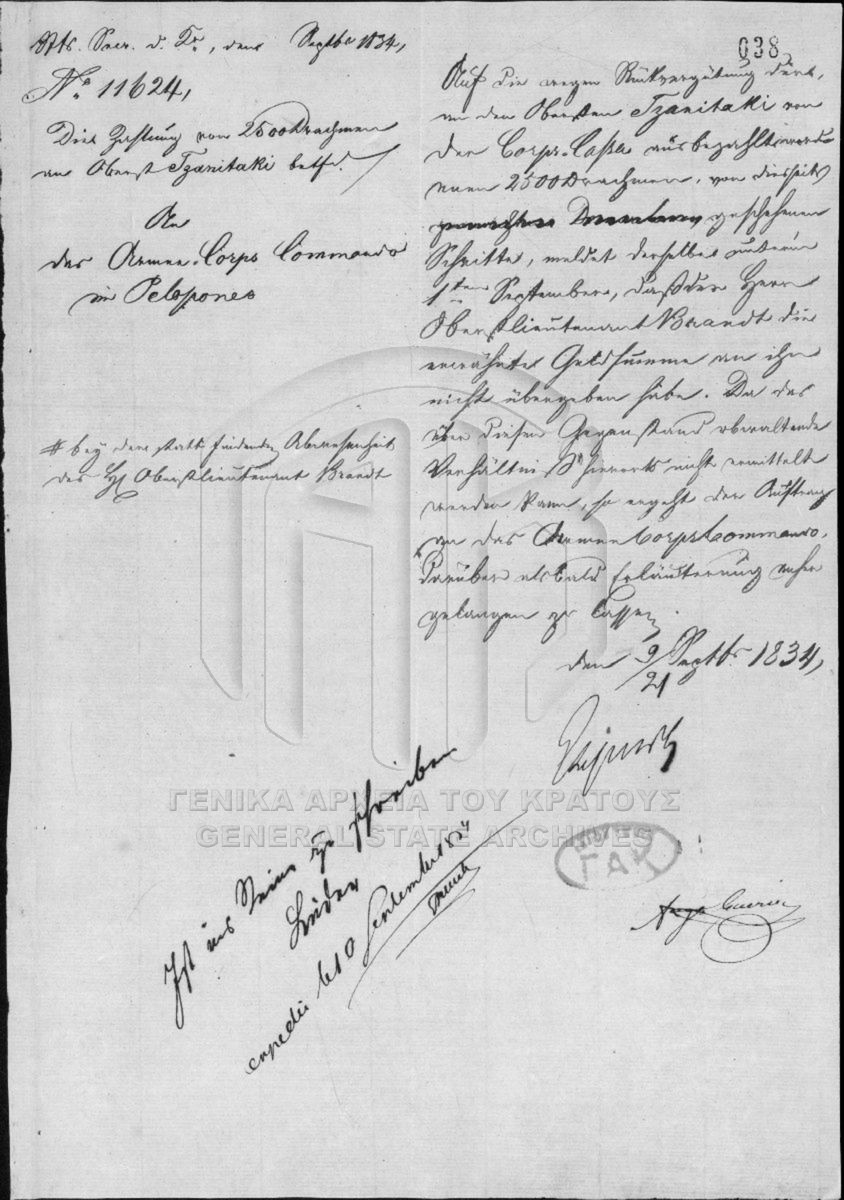 Sts. Secr. d. Kr., den Septbr 1834,
No. 11624,
Die Zahlung von 2500 Drachmen
an Oberst Tzanitaki betfd.
An
das Armee-Corps Commando
in Pelopones
# bey der statt findenden Abwesenheit
des H. Oberstlieutenant Brandt
038
Auf die wegen Rückvergütung der,
an den Obersten Tzanitaki von
der Corps-Cassa ausbezahlt word-
enen 2500 Drachmen, von diesseits
geschehenen
Schritte, meldet derselbe unterm
1ten September, daß der Herr
Oberstlieutenant Brandt die
erwähnte Geldsumme an ihn
nicht übergeben habe. Da das
über diesen Gegenstand obwaltende
Verhältniß hierorts nicht ermittelt
werden kann, so ergeht der Auftrag
an das Armee Corps Commando,
darüber alsbald Erläuterung anher
gelangen zu lassen.
den 9/21 Septbr. 1834,
Ist ins Reine zu schreiben
Lüder
expedit 10 September 834
ΓΕΝΙΚΑ ΑΡΧΕΙΑ ΤΟΥ ΚΡΑΤΟΥΣ
GENERAL STATE ARCHIVES
ΓΑΚ